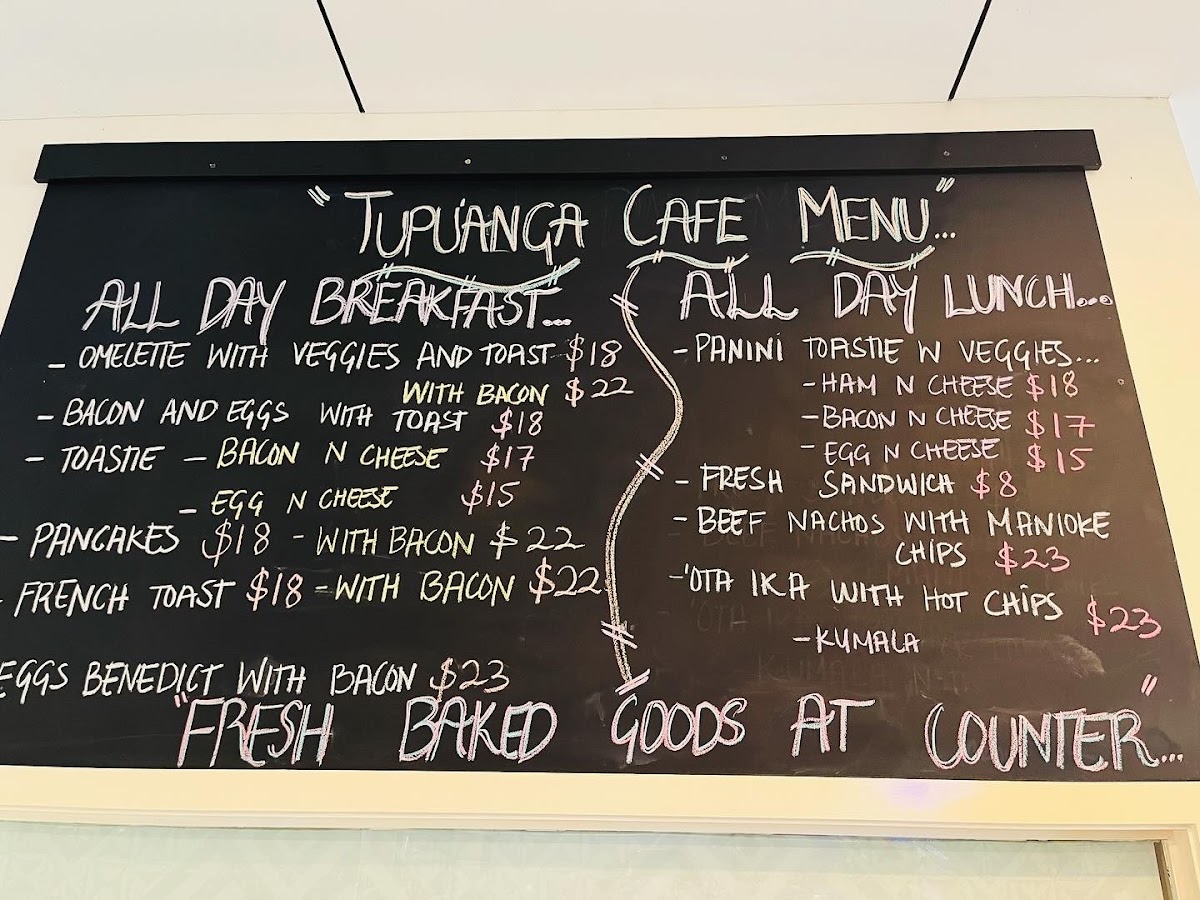 "TUPU'ANGA CAFE MENU"...
ALL DAY BREAKFAST...
- OMELETTE WITH VEGGIES AND TOAST $18
WITH BACON $22
- BACON AND EGGS WITH TOAST $18
- TOASTIE - BACON N CHEESE $17
- EGG N CHEESE $15
- PANCAKES $18 - WITH BACON $22
- FRENCH TOAST $18 - WITH BACON $22
EGGS BENEDICT WITH BACON $23
ALL DAY LUNCH...
- PANINI TOASTIE W VEGGIES...
- HAM N CHEESE $18
- BACON N CHEESE $17
- EGG N CHEESE $15
- FRESH SANDWICH $8
- BEEF NACHOS WITH MANIOKE
CHIPS $23
- 'OTA IKA WITH HOT CHIPS $23
- KUMALA
"FRESH BAKED GOODS AT COUNTER"...